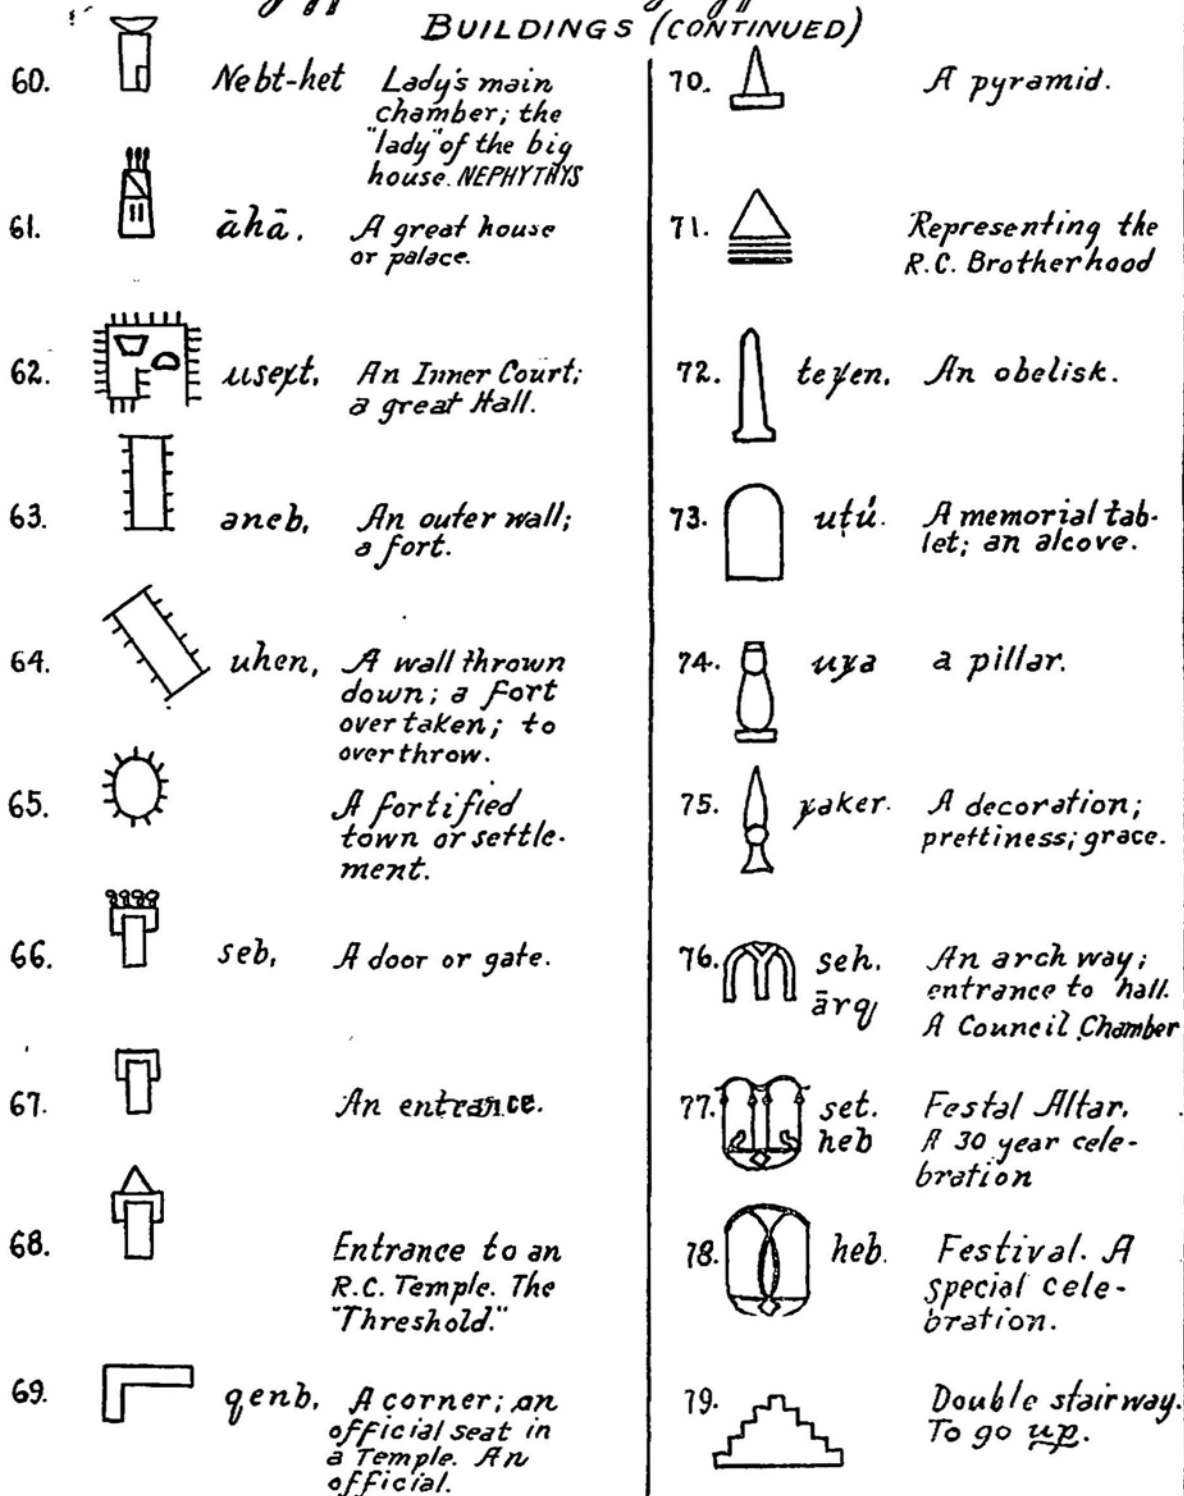 BUILDINGS (CONTINUED)
60. Nebt-het Lady's main
chamber; the
"lady" of the big
house. NEPHYTHYS
61. āhā. A great house
or palace.
62. useχt. An Inner Court;
a great Hall.
63. aneb, An outer wall;
a fort.
64. uhen, A wall thrown
down; a fort
overtaken; to
overthrow.
65. A fortified
town or settle-
ment.
66. seb, A door or gate.
67. An entrance.
68. Entrance to an
R.C. Temple. The
"Threshold."
69. qenb, A corner; an
official seat in
a Temple. An
official.
70. A pyramid.
71. Representing the
R.C. Brotherhood
72. teχen. An obelisk.
73. uṭú. A memorial tab-
let; an alcove.
74. uχa a pillar.
75. χaker. A decoration;
prettiness; grace.
76. seh. An arch way;
entrance to hall.
ārq A Council Chamber
77. set. Festal Altar.
heb A 30 year cele-
bration
78. heb. Festival. A
special cele-
bration.
79. Double stairway.
To go up.